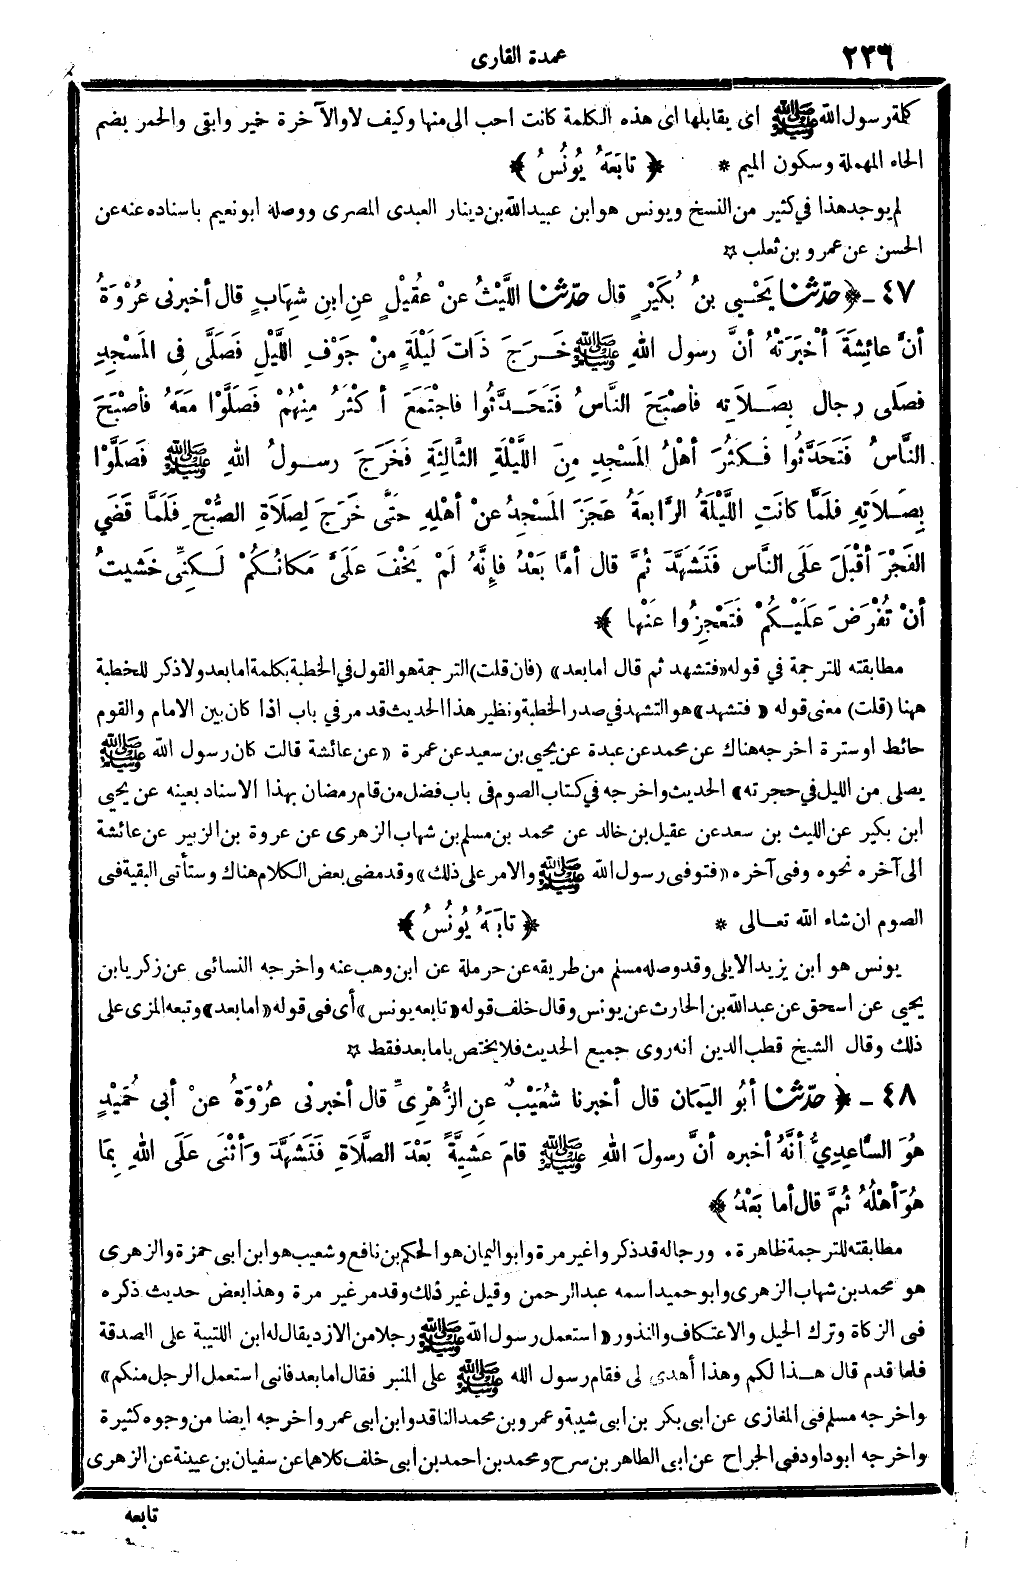 ٢٢٦
عمدة القارى
كلمة رسول الله ﷺ اى يقابلها اى هذه الكلمة كانت احب الى منها وكيف لا والآخرة خير وابقى والحمر بضم
الحاء المهملة وسكون الميم * ﴿ تابَعَهُ يُونُسُ ﴾
لم يوجد هذا فى كثير من النسخ ويونس هو ابن عبيد الله بن دينار العبدى المصرى ووصله ابو نعيم باسناده عنه عن
الحسن عن عمرو بن ثعلب *
٤٧ - ﴿ حدّثنا يَحْيى بنُ بُكَيْرٍ قال حدّثنا اللَّيْثُ عنْ عقُيلٍ عنِ ابنِ شِهابٍ قال أخبرنى عُرْوَةُ
أنَّ عائِشَةَ أخْبَرَتْهُ أنَّ رسول اللهِ ﷺ خَرَجَ ذَاتَ لَيْلَةٍ منْ جَوْفِ اللَّيْلِ فَصَلَّى فِى المَسْجِدِ
فصَلى رجال بِصَلاَتِه فأصْبَحَ النَّاسُ فَتَحَدَّثُوا فاجْتَمَعَ أكْثَرُ مِنْهُمْ فَصَلَّوْا مَعَهُ فأصْبَحَ
النَّاسُ فَتَحَدَّثُوا فَكَثُرَ أهْلُ المَسْجِدِ مِنَ اللَّيْلَةِ الثَّالِثَةِ فَخَرَجَ رسولُ اللهِ ﷺ فَصَلَّوْا
بِصَلاَتِهِ فلَمَّا كانَتِ اللَّيْلَةُ الرَّابعَةُ عَجَزَ المَسْجِدُ عنْ أهْلِهِ حتَّى خَرَجَ لِصَلاَةِ الصُّبْحِ فَلَمَّا قَضَي
الفَجْرَ أقْبَلَ عَلَى النَّاس فَتَشَهَّدَ ثُمَّ قال أمَّا بَعْدُ فإنَّهُ لَمْ يَخْفَ عَلَىَّ مَكانُكُمْ لَكنِّى خَشيتُ
أنْ تُفْرَضَ عَلَيْكُمْ فَتَعْجِزُوا عَنْها ﴾
مطابقته للترجمة في قوله «فتشهد ثم قال اما بعد» (فان قلت) الترجمة هو القول فى الخطبة بكلمة اما بعد ولا ذكر للخطبة
ههنا (قلت) معنى قوله «فتشهد» هو التشهد فى صدر الخطبة ونظير هذا الحديث قد مر فى باب اذا كان بين الامام والقوم
حائط او سترة اخرجه هناك عن محمد عن عبدة عن يحيى بن سعيد عن عمرة «عن عائشة قالت كان رسول الله ﷺ
يصلى من الليل فى حجرته» الحديث واخرجه فى كتاب الصوم فى باب فضل من قام رمضان بهذا الاسناد بعينه عن يحيى
ابن بكير عن الليث بن سعد عن عقيل بن خالد عن محمد بن مسلم بن شهاب الزهرى عن عروة بن الزبير عن عائشة
الى آخره نحوه وفى آخره «فتوفى رسول الله ﷺ والامر على ذلك» وقد مضى بعض الكلام هناك وستأتى البقية فى
الصوم ان شاء الله تعالى * ﴿ تابَعَهُ يُونُسُ ﴾
يونس هو ابن يزيد الايلى وقد وصله مسلم من طريقه عن حرملة عن ابن وهب عنه واخرجه النسائى عن زكريا بن
يحيي عن اسحق عن عبد الله بن الحارث عن يونس وقال خلف قوله «تابعه يونس» أى فى قوله «اما بعد» وتبعه المزى على
ذلك وقال الشيخ قطب الدين انه روى جميع الحديث فلا يختص باما بعد فقط *
٤٨ - ﴿ حدّثنا أبُو اليَمَان قال أخبرنا شُعَيْبٌ عنِ الزُّهْرِىِّ قال أخبرنى عُرْوَةُ عنْ أبى حُمَيْدٍ
هُوَ السَّاعِدِيُّ أنَّهُ أخبره أنَّ رسولَ اللهِ ﷺ قامَ عَشيَّةً بَعْدَ الصَّلاَةِ فَتَشَهَّدَ وَأثْنَى عَلَى اللهِ بِمَا
هُوَ أهْلُهُ ثُمَّ قال أما بَعْدُ ﴾
مطابقته للترجمة ظاهرة. ورجاله قد ذكروا غير مرة وابو اليمان هو الحكم بن نافع وشعيب هو ابن ابى حمزة والزهرى
هو محمد بن شهاب الزهرى وابو حميد اسمه عبد الرحمن وقيل غير ذلك وقد مر غير مرة وهذا بعض حديث ذكره
فى الزكاة وترك الحيل والاعتكاف والنذور «استعمل رسول الله ﷺ رجلا من الازد يقال له ابن اللتبية على الصدقة
فلما قدم قال هذا لكم وهذا أهدى لى فقام رسول الله ﷺ على المنبر فقال اما بعد فانى استعمل الرجل منكم»
واخرجه مسلم فى المغازى عن ابى بكر بن ابى شيبة وعمرو بن محمد الناقد وابن ابى عمر واخرجه ايضا من وجوه كثيرة
واخرجه ابو داود فى الجراح عن ابى الطاهر بن سرح ومحمد بن احمد بن ابى خلف كلاهما عن سفيان بن عيينة عن الزهرى
تابعه